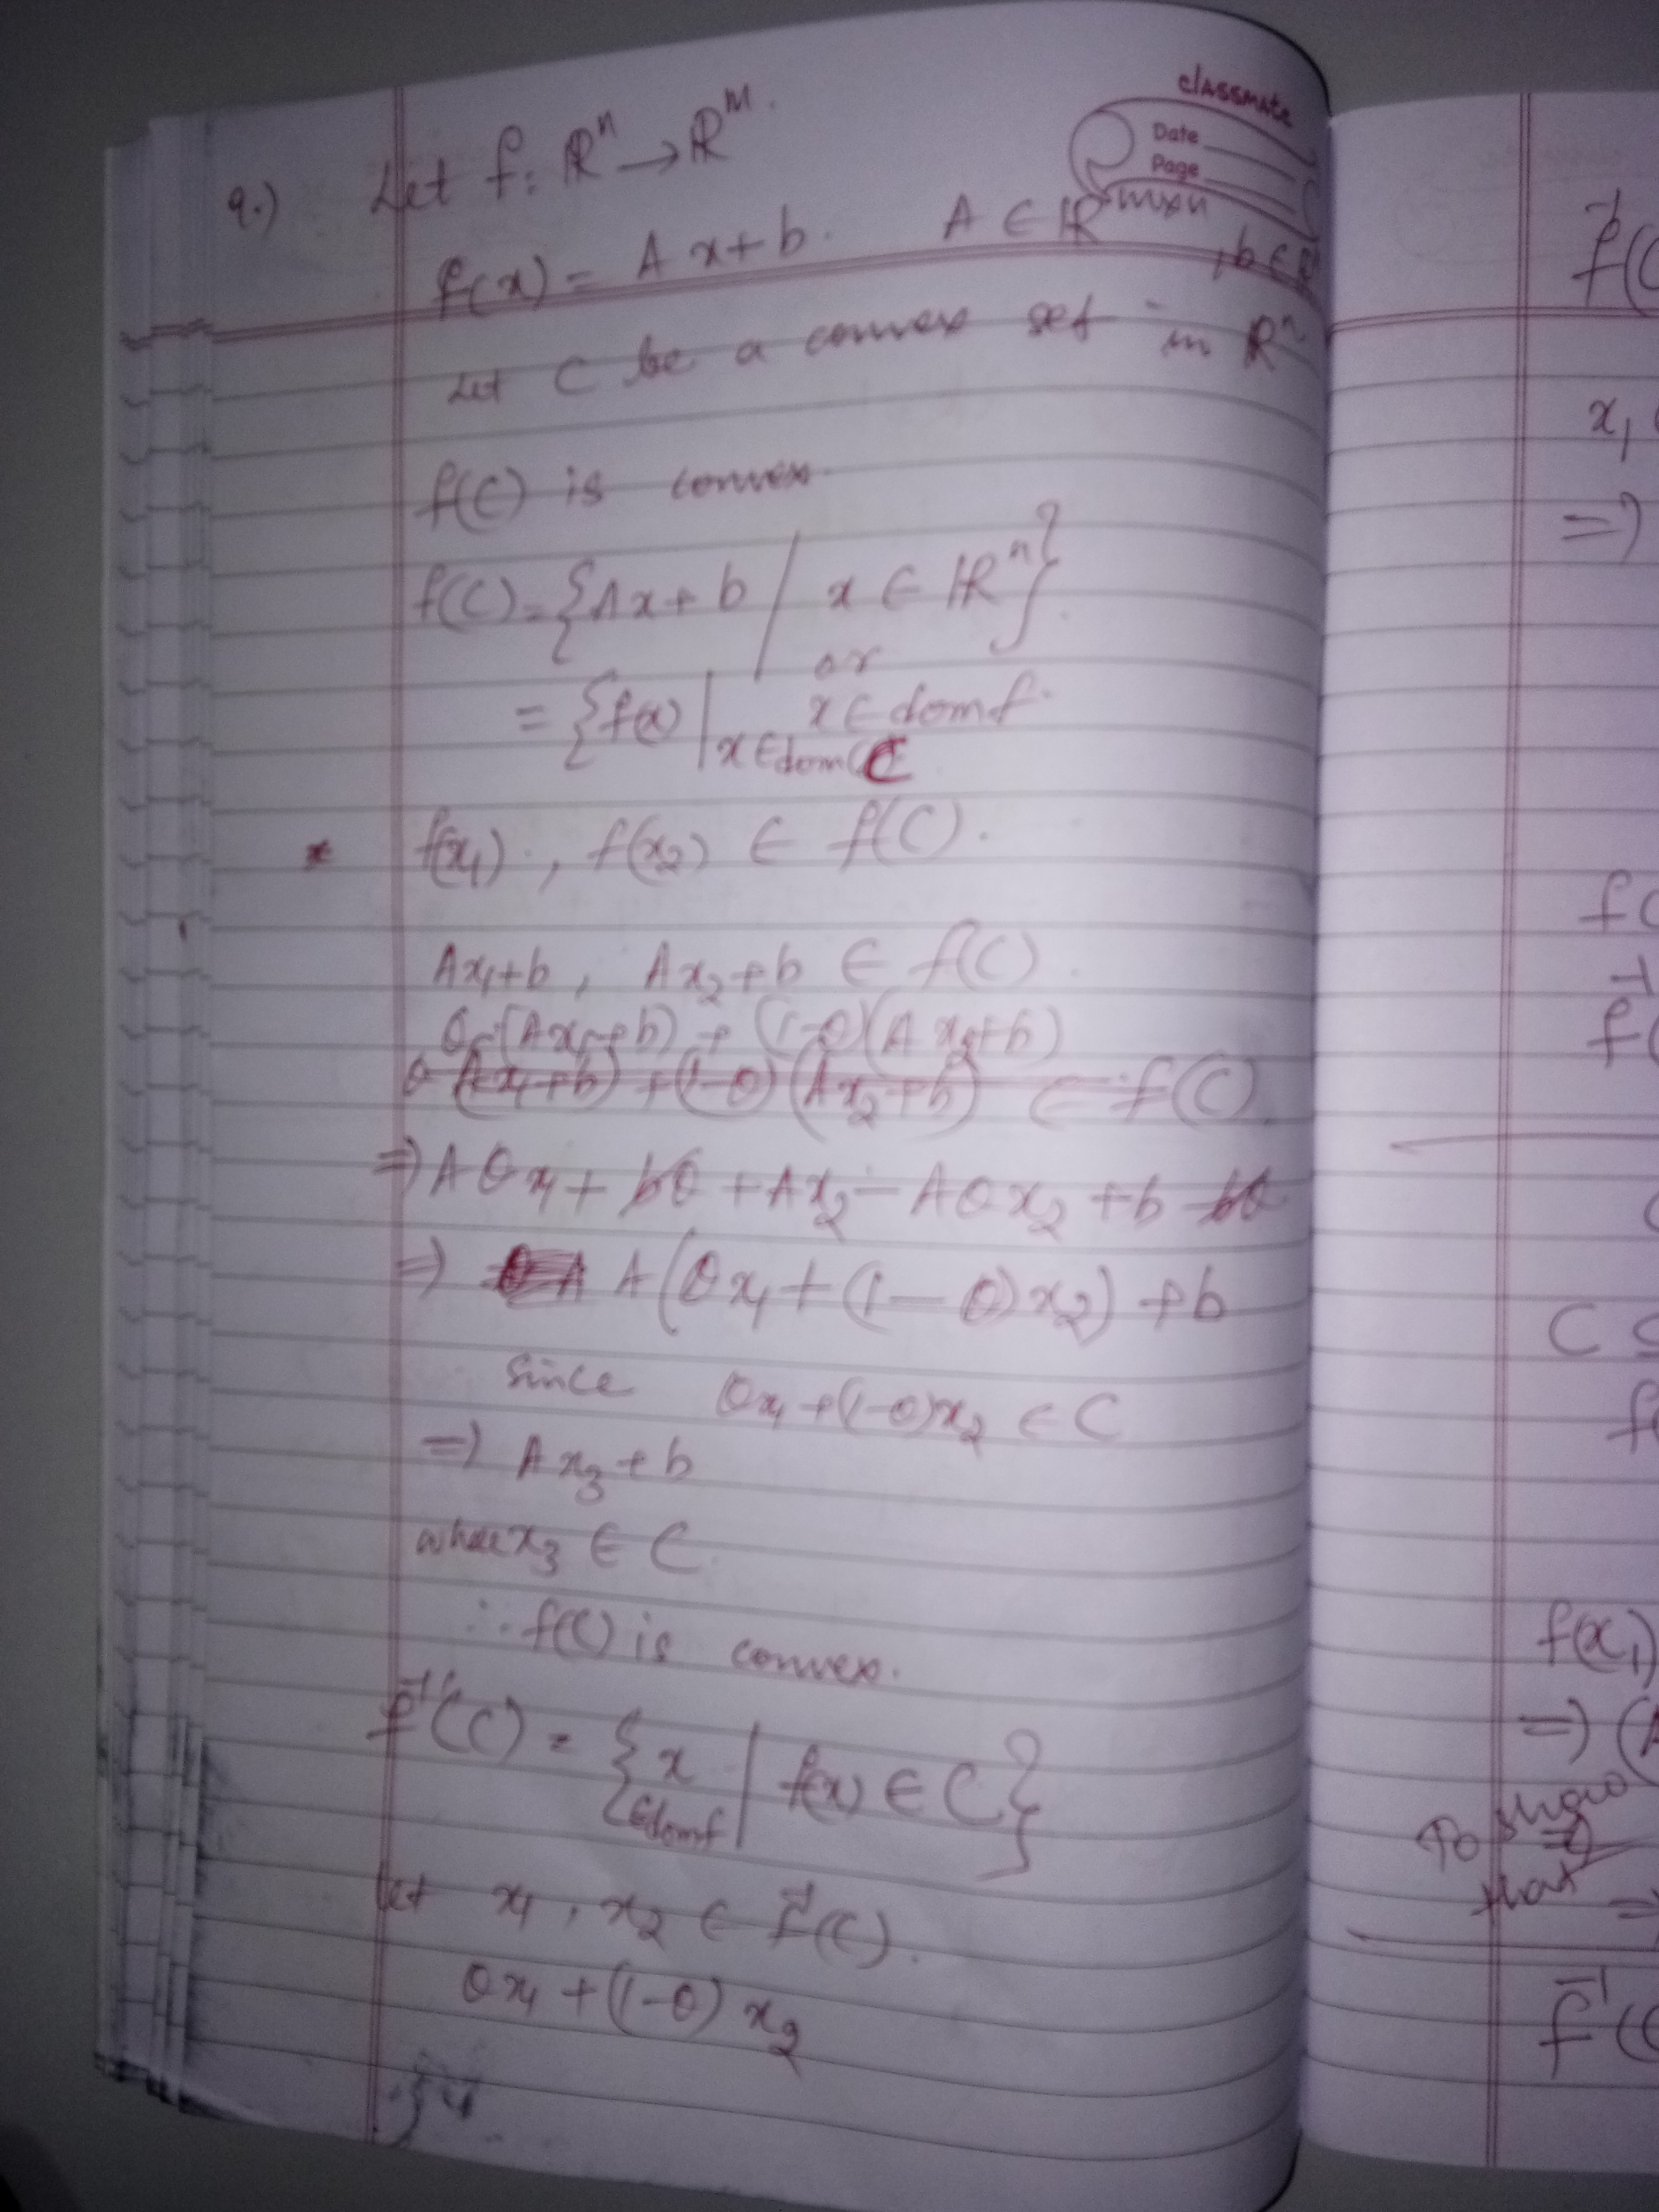 classmate
Date
Page
9.) Let f: ℝⁿ → ℝᴹ.
f(x) = Ax + b. A ∈ ℝᵐˣⁿ
, b ∈ ℝ
Let C be a convex set in ℝⁿ
f(C) is convex.
f(C) = {Ax + b / x ∈ ℝⁿ}.
or
= {f(x) | x ∈ dom f.
x ∈ dom C
* f(x₁), f(x₂) ∈ f(C).
Ax₁+b, Ax₂+b ∈ f(C).
θ (Ax₁+b) + (1-θ)(Ax₂+b)
θ (Ax₁+b) + (1-θ) (Ax₂+b) ∈ f(C)
⇒ Aθx₁ + bθ + Ax₂ - Aθx₂ + b - bθ
⇒ A(θx₁ + (1-θ)x₂) + b
Since θx₁ + (1-θ)x₂ ∈ C
⇒ Ax₃ + b
where x₃ ∈ C.
∴ f(C) is convex.
f⁻¹(C) = {x | f(x) ∈ C}
∈ dom f
Let x₁, x₂ ∈ f⁻¹(C).
θx₁ + (1-θ) x₂
x₁
⇒
C
f(x₁)
⇒ (A
To show
that
⇒
f⁻¹(